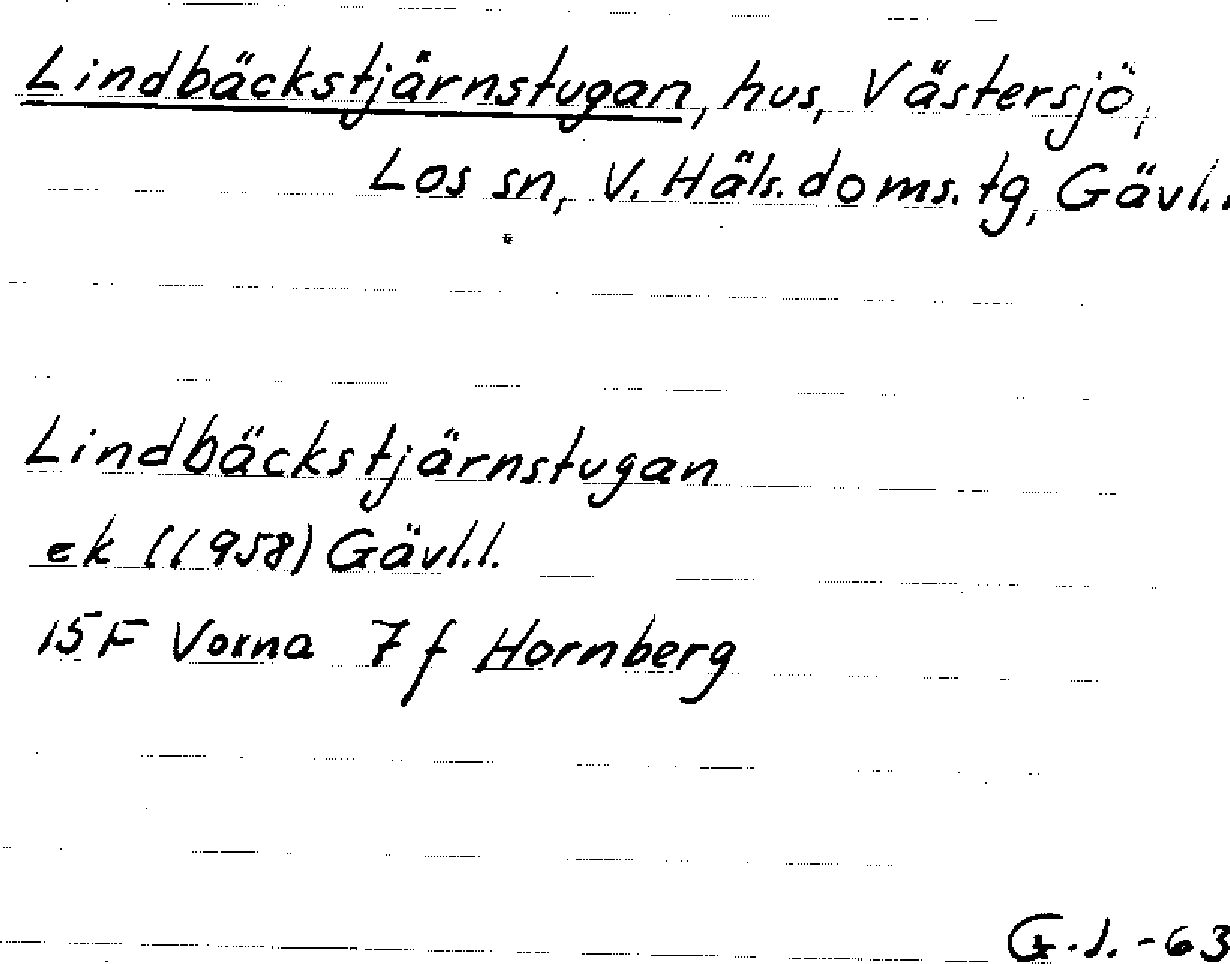 Lindbäckstjärnstugan, hus, Västersjö,
Los sn, V. Häls. doms. tg, Gävl.l
Lindbäckstjärnstugan
ek (1958) Gävl.l.
15F Voxna 7f Hornberg
G.J. -63